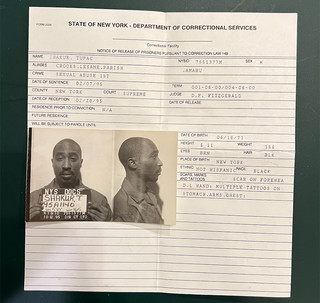 STATE OF NEW YORK - DEPARTMENT OF CORRECTIONAL SERVICES
Correctional Facility
NOTICE OF RELEASE OF PRISONERS PURSUANT TO CORRECTION LAW 149
NAME TUPAC NYSID SEX M
ALIASES CROOKS, LESANE, PARISH AMARU
CRIME SEXUAL ABUSE 1ST
DATE OF SENTENCE 02/07/95 TERM 001-06-00/004-06-00
COUNTY NEW YORK COURT SUPREME JUDGE D.P. FITZGERALD
DATE OF RECEPTION DATE OF RELEASE
RESIDENCE PRIOR TO CONVICTION N/A
FUTURE RESIDENCE
WILL BE SUBJECT TO PAROLE UNTIL
DATE OF BIRTH 06/16/71
HEIGHT 5.11 WEIGHT
EYES HAIR BLK
PLACE OF BIRTH NEW YORK
NOT HISPANIC RACE BLACK
SCARS, MARKS AND TATTOOS SCAR ON FOREHEA
D,L HAND; MULTIPLE TATTOOS ON
STOMACH,ARMS,CHEST;
NYS DOCS
SHAKUR T
95A1140